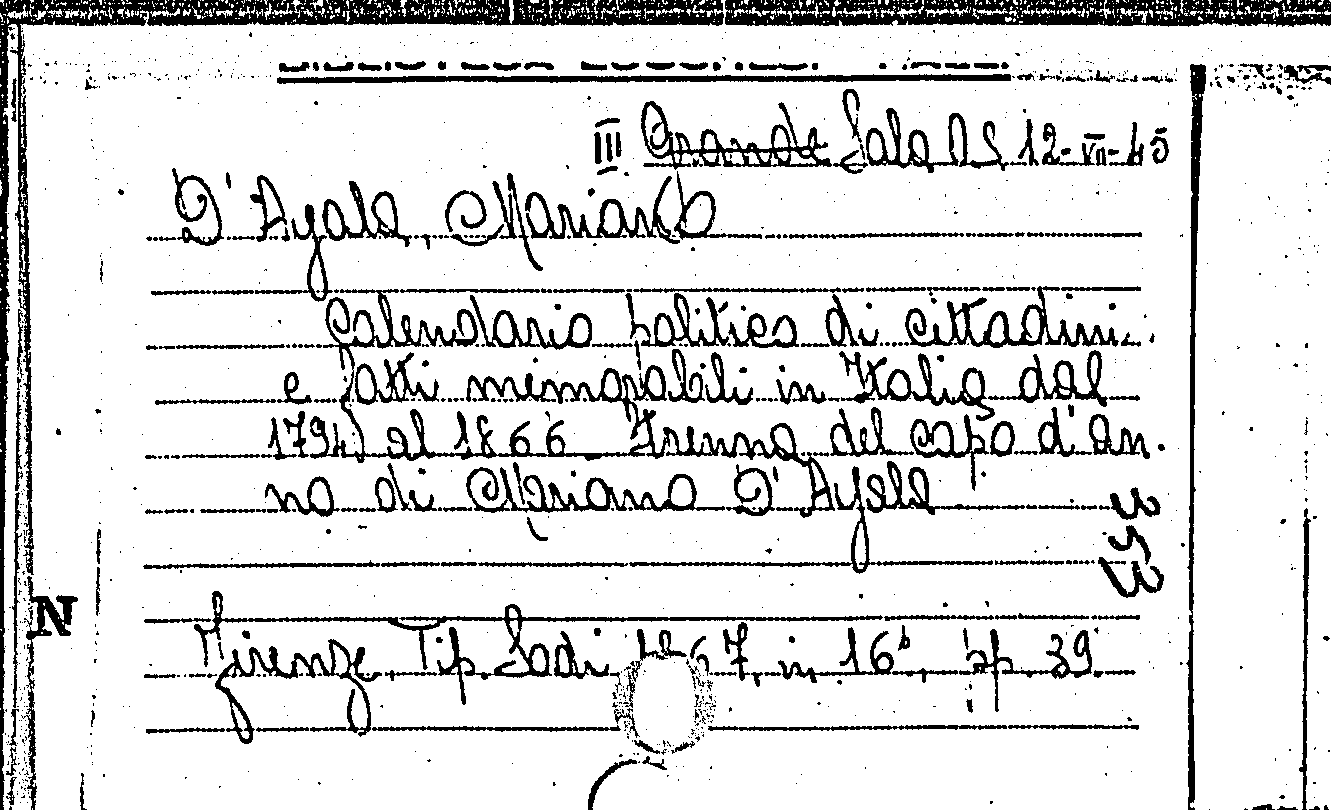 III Grande Sala DS. 12-VII-45
D'Ayala, Mariano
Calendario politico di cittadini
e fatti memorabili in Italia dal
1794 al 1866. Strenna del capo d'an-
no di Mariano D'Ayala
N
Firenze, Tip. Sodi 1867, in 16°, pp. 39.